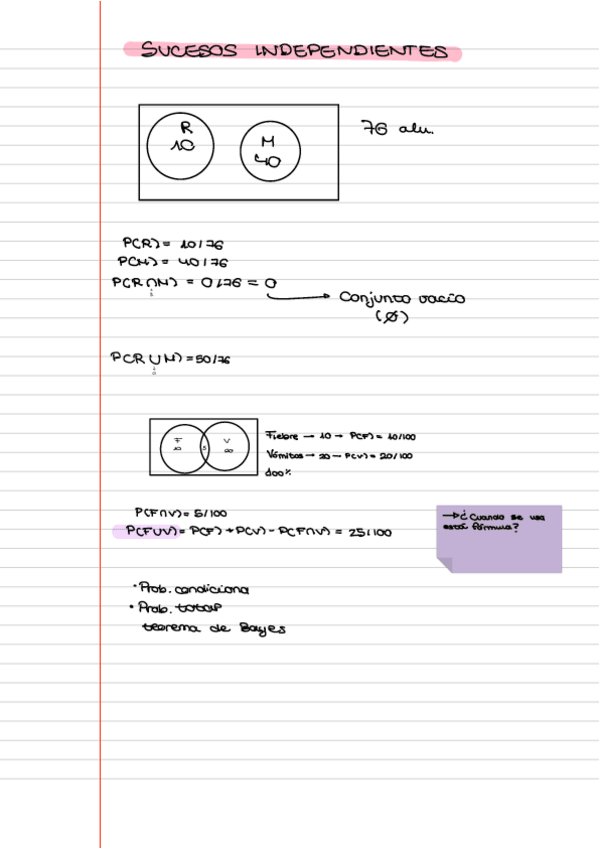 SUCESOS INDEPENDIENTES
R
10
M
40
76 alu.
P(R) = 10/76
P(M) = 40/76
P(R∩M) = 0/76 = 0
Conjunto vacío
(Ø)
P(R∪M) = 50/76
F
10
5
V
20
Fiebre → 10 → P(F) = 10/100
Vómitos → 20 → P(V) = 20/100
100%
P(F∩V) = 5/100
P(F∪V) = P(F) + P(V) - P(F∩V) = 25/100
→ ¿Cuando se usa
está fórmula?
· Prob. condiciona
· Prob. total
teorema de Bayes